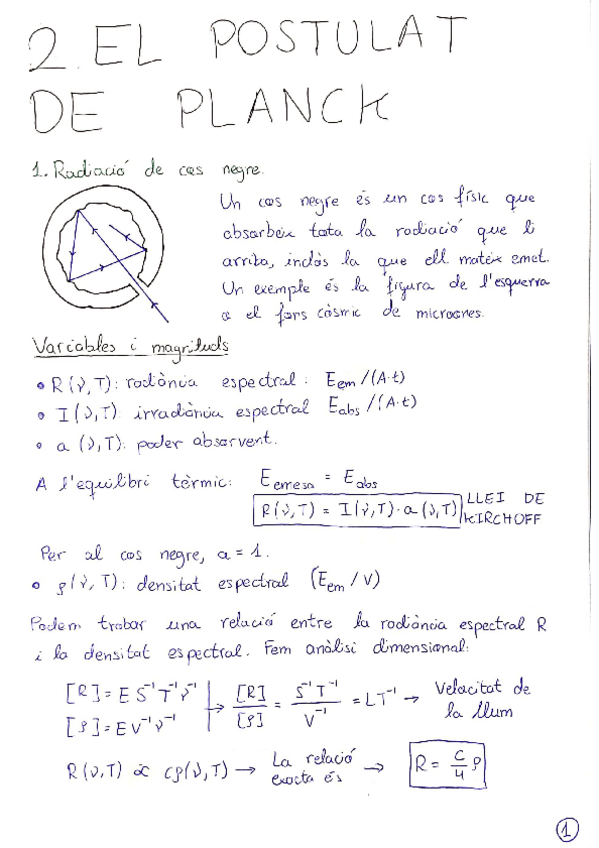 2. EL POSTULAT
DE PLANCK
1. Radiació de cos negre.
Un cos negre és un cos físic que
absorbeix tota la radiació que li
arriba, inclòs la que ell mateix emet.
Un exemple és la figura de l'esquerra
o el fons còsmic de microones.
Variables i magnituds
• R(ν,T): radiància espectral: Eem/(A·t)
• I(ν,T): irradiància espectral Eabs/(A·t)
• a (ν,T): poder absorvent.
A l'equilibri tèrmic: Eemesa = Eabs
R(ν,T) = I(ν,T)·a(ν,T) LLEI DE
KIRCHOFF
Per al cos negre, a = 1.
• ρ(ν,T): densitat espectral (Eem/V)
Podem trobar una relació entre la radiància espectral R
i la densitat espectral. Fem anàlisi dimensional:
[R] = E S⁻¹ T⁻¹ ν⁻¹
[ρ] = E V⁻¹ ν⁻¹
→ [R]/[ρ] = S⁻¹T⁻¹/V⁻¹ = LT⁻¹ → Velocitat de
la llum
R(ν,T) ∝ cρ(ν,T) → La relació
exacta és → R = c/4 ρ
1